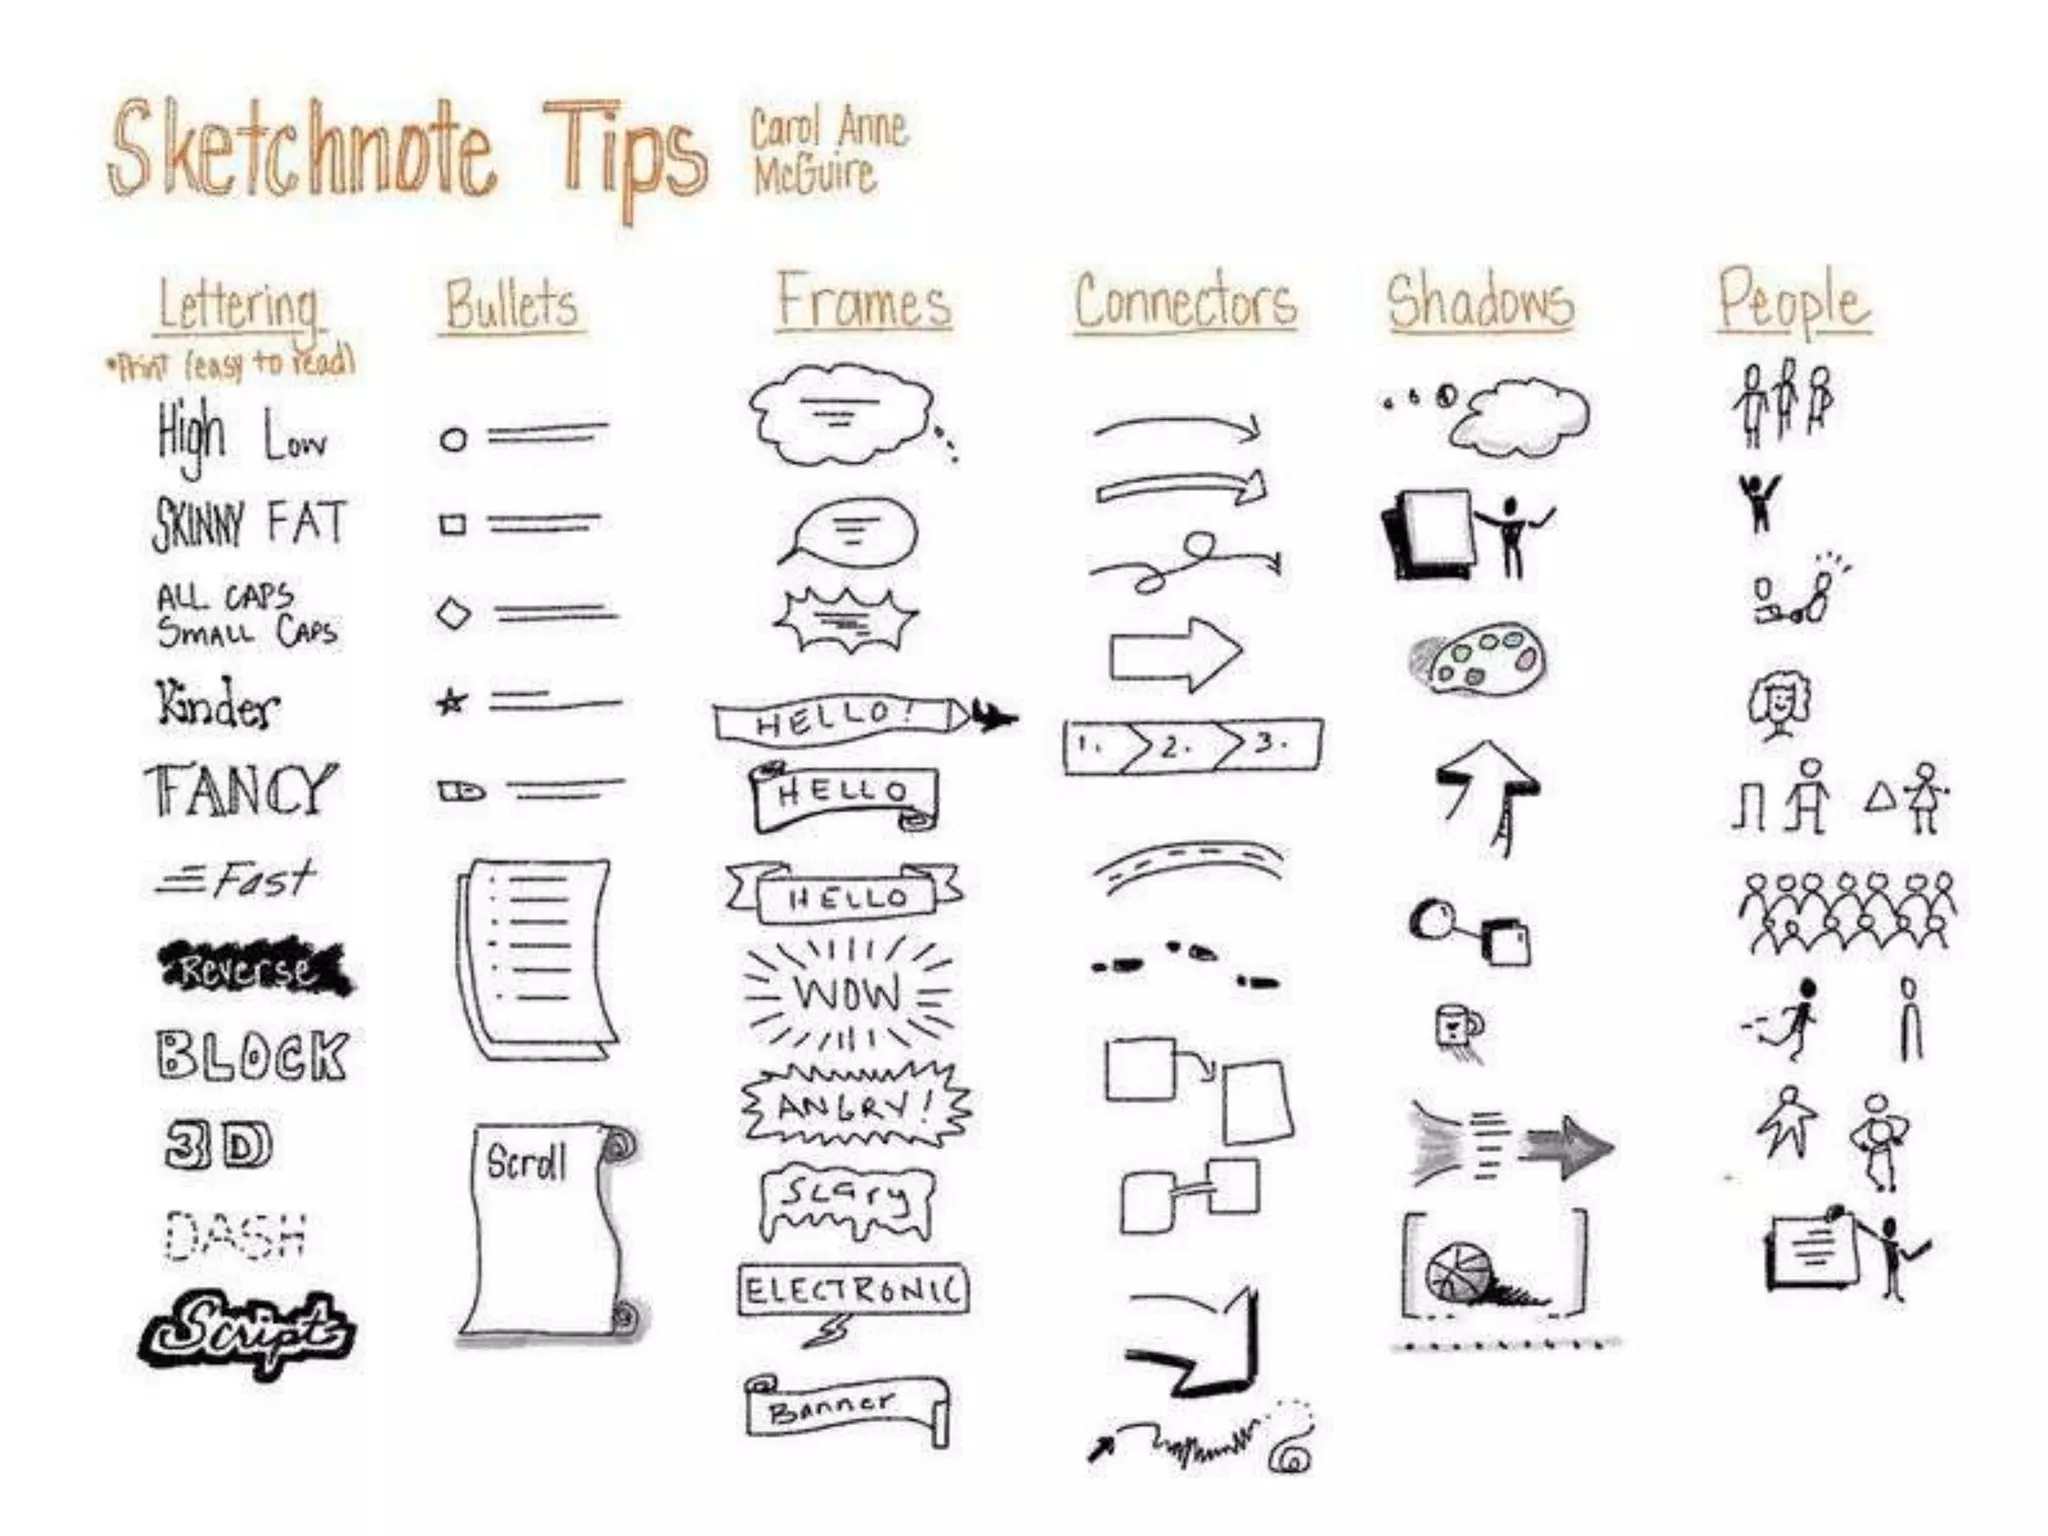 Sketchnote Tips
Carol Anne
McGuire
Lettering
•Print (easy to read)
High Low
SKINNY FAT
ALL CAPS
SMALL CAPS
Kinder
FANCY
Fast
Reverse
BLOCK
3D
DASH
Script
Bullets
Scroll
Frames
HELLO!
HELLO
HELLO
WOW
ANGRY!
Scary
ELECTRONIC
Banner
Connectors
1. 2. 3.
Shadows
People